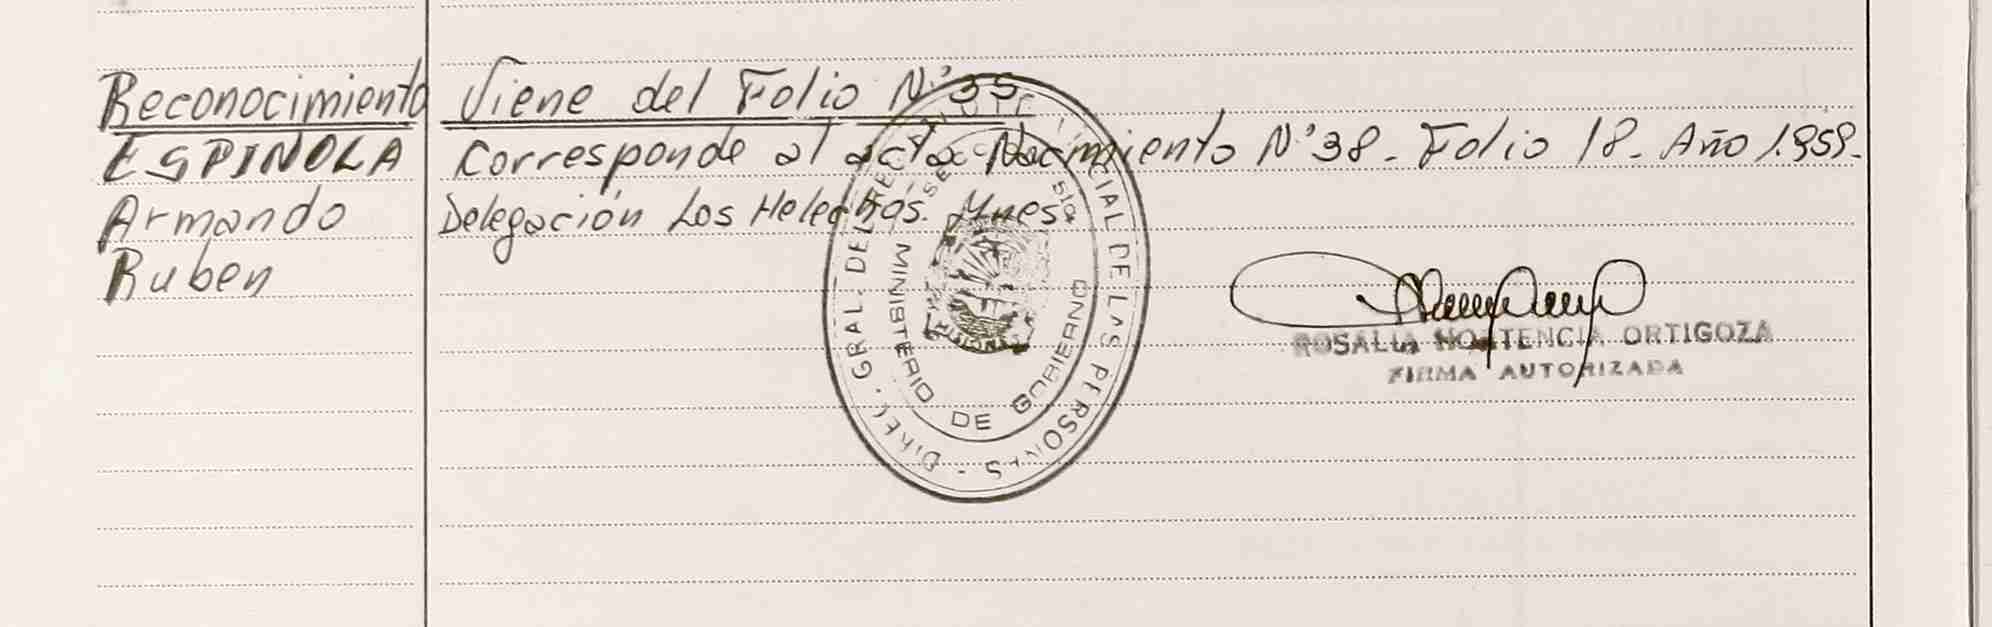 Reconocimiento Viene del Folio N° 35
ESPINOLA Corresponde al acta Nacimiento N° 38. Folio 18. Año 1.959.
Armando Delegación Los Helechos. Mnes
Ruben
DIREC. GRAL. DEL REG. PROVINCIAL DE LAS PERSONAS -
MINISTERIO DE GOBIERNO
MISIONES
ROSALIA HORTENCIA ORTIGOZA
FIRMA AUTORIZADA